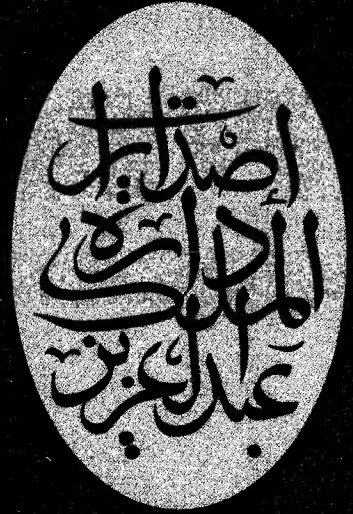 إصدارات
دارة
الملك
عبد العزيز